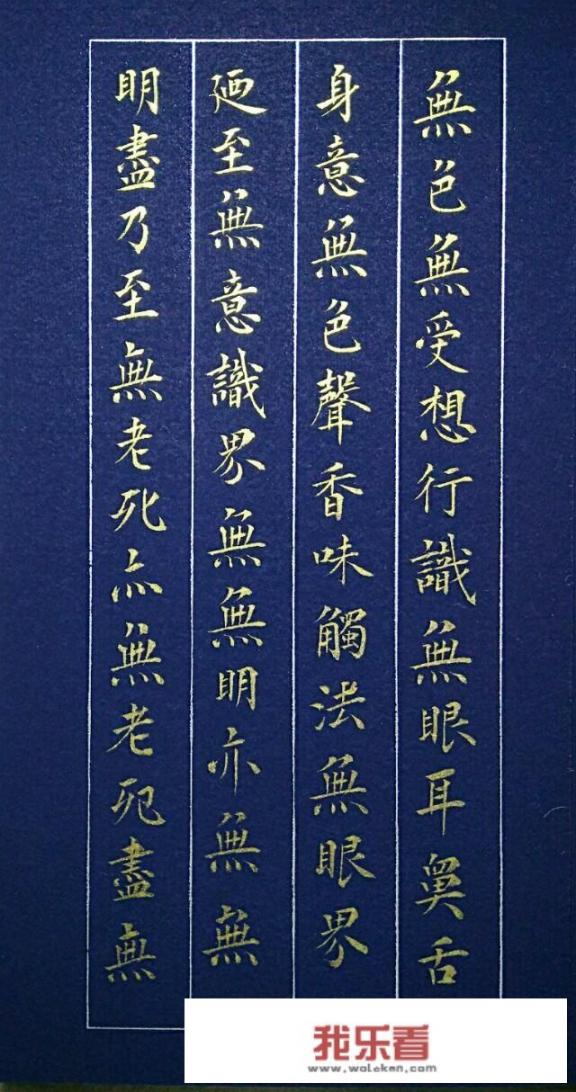 無色無受想行識無眼耳鼻舌
身意無色聲香味觸法無眼界
廼至無意識界無無明亦無無
明盡乃至無老死亦無老死盡無
我乐看
www.woleken.com